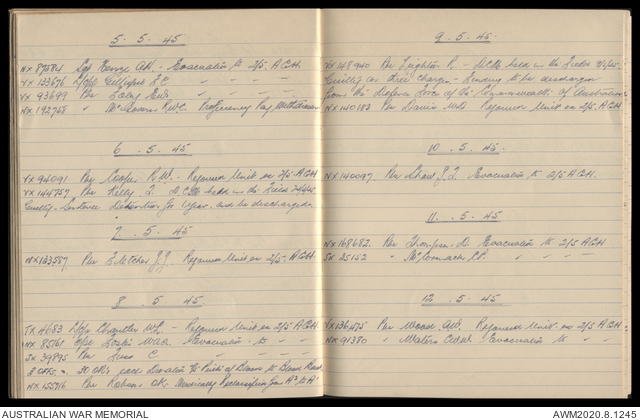 5. 5. 45
NX 87584 Sgt George A.H. - Evacuation to 2/5 A.G.H.
VX 133676 L/Cpl Gillespie L.C. " " "
VX 93699 Pte Foley Edw. - " " "
NX 192768 " McGovern R.W.C. Proficiency Pay Withdrawn
6 . 5. 45
VX 94091 Pte Cooper R.W. - Rejoined Unit ex 2/5 A.G.H.
VX 144757 Pte Kelly T. D.C.M. held in the Field
Guilty - Sentence Detention for 1 year and be discharged
7. 5. 45
NX 133587 Pte Fletcher J.J. Rejoined Unit ex 2/5 A.G.H.
8 . 5. 45
TX 4683 L/Cpl Chantler W.G. - Rejoined Unit ex 2/5 A.G.H.
NX 85161 Cpl W.A.A. Evacuation to - " -
SX 39895 Pte Lees C. " " "
NX 155916 Pte Robson Medically Reclassified from A2 to A1
9. 5. 45
VX 148940 Pte Leighton R. - D.C.M. held in the Field
Guilty on three charges - Sending to be discharged
from the Defence Force of the Commonwealth of Australia
NX 140183 Pte Davis W.D. Rejoined Unit ex 2/5 A.G.H.
10 . 5. 45
NX 140097. Pte Shaw J.T. Evacuation to 2/5 A.G.H.
11. . 5. 45
NX 168682. Pte Thompson D. Evacuation to 2/5 A.G.H.
SX 35152 " McCormack " " "
12 . 5. 45
VX 136475 Pte Wood A.W. Rejoined Unit ex 2/5 A.G.H.
NX 91380 " Waters Evacuation to - " -
AUSTRALIAN WAR MEMORIAL
AWM2020.8.1245